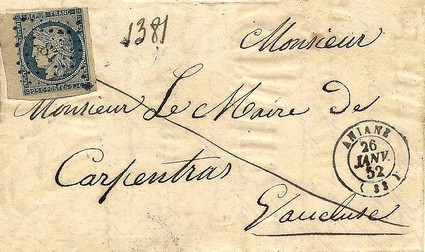 REPUB. FRANC.
1381
Monsieur
25 C. POSTES 25 C.
Monsieur Le Maire de
ANIANE
26
JANV.
52
(33)
Carpentras
Vaucluse